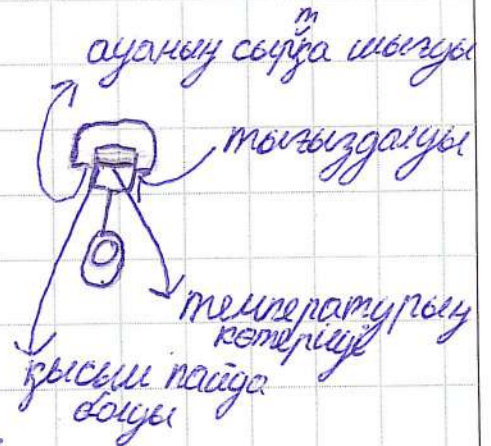 ауаның сыртқа шығуы
тығыздалуы
температураның
көтерілуі
қысым пайда
болуы